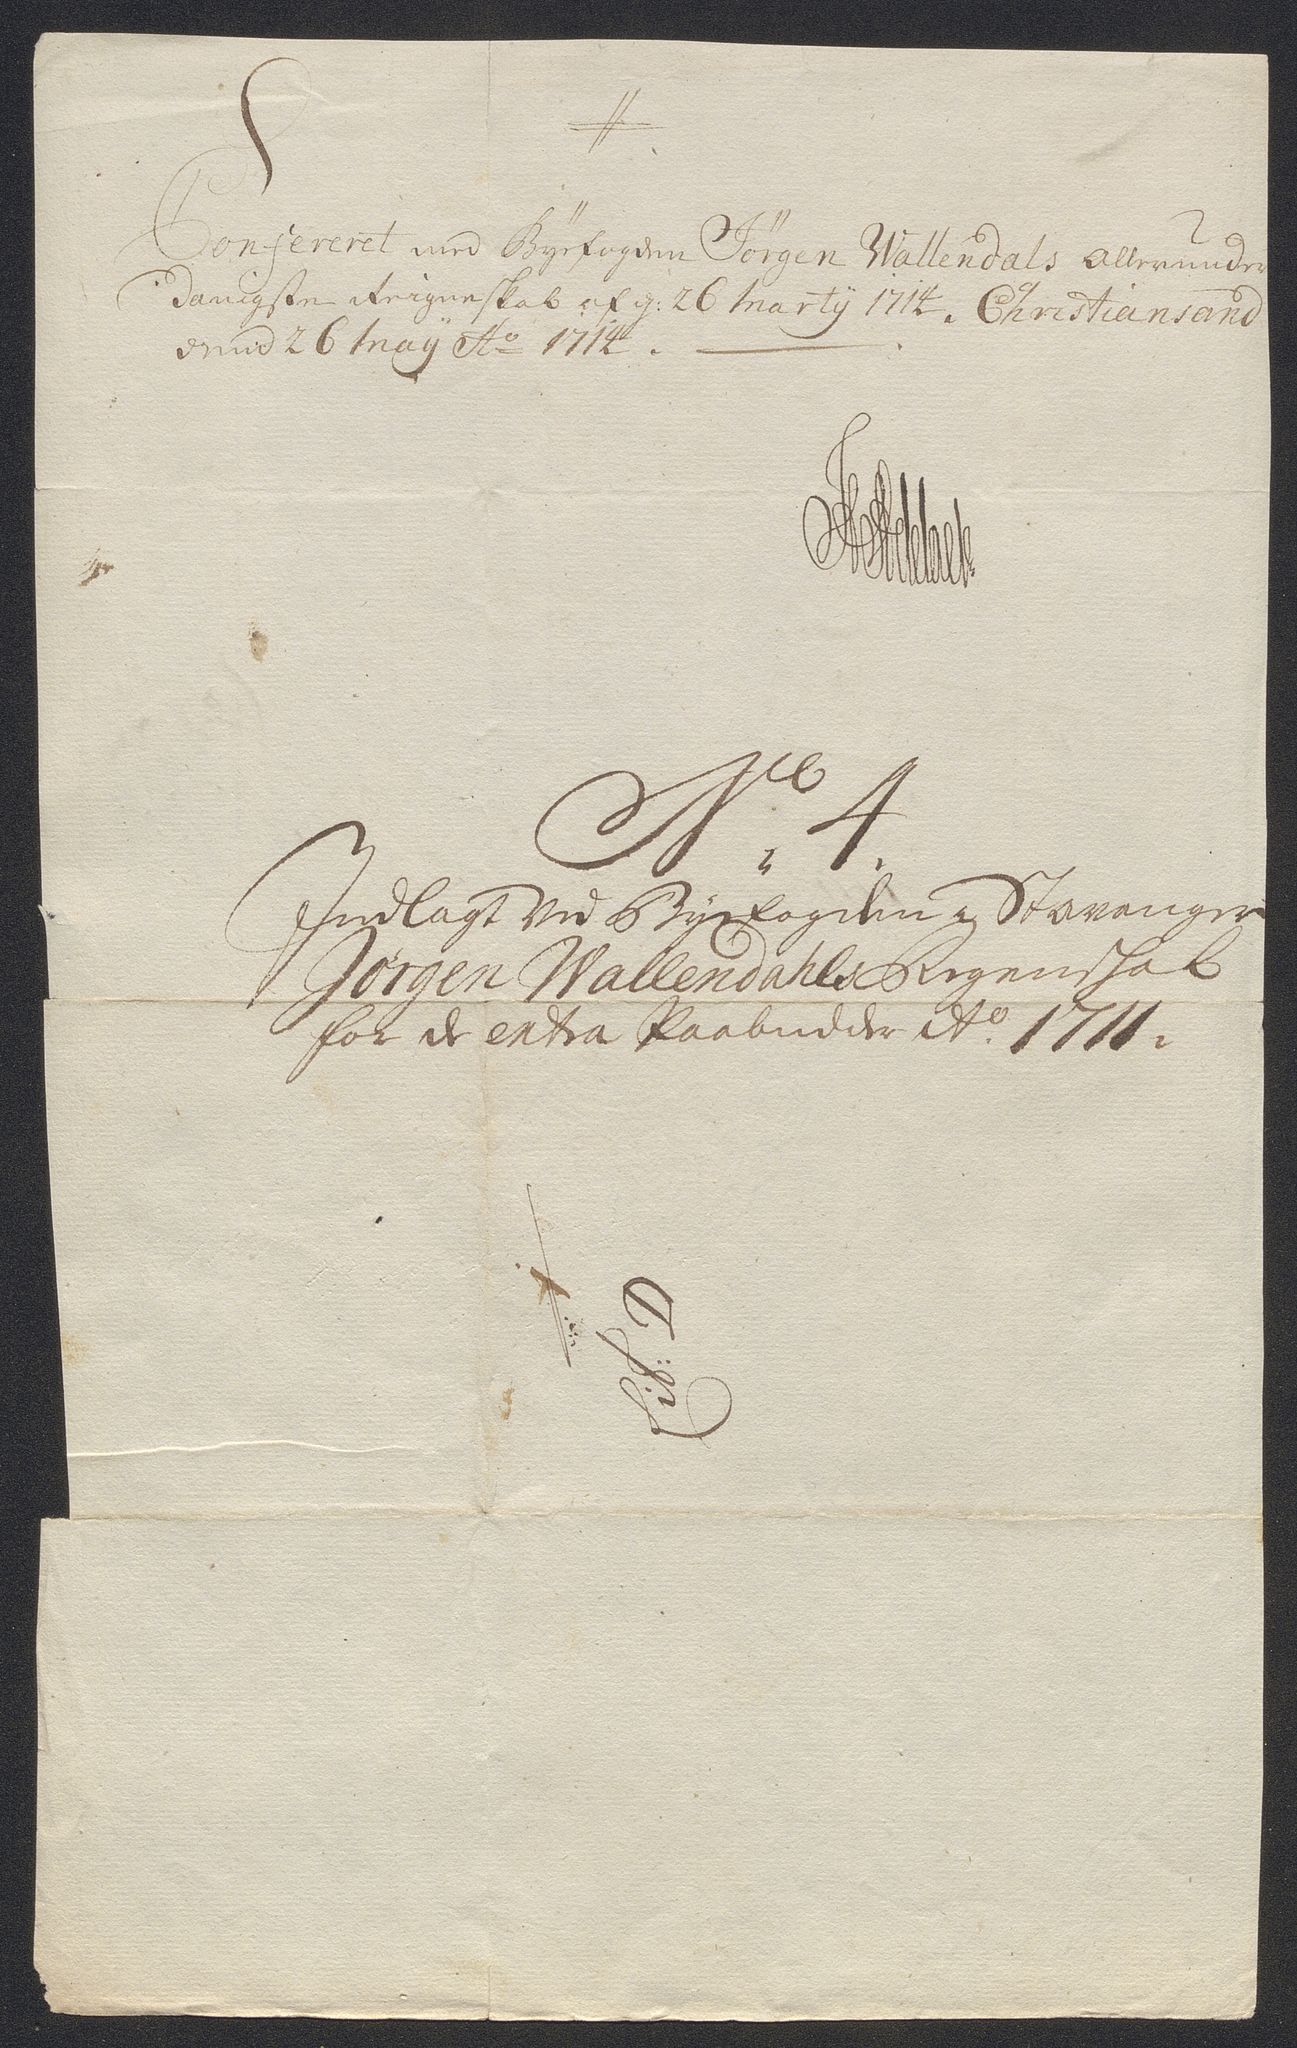 Confereret med Byefogden Jörgen Wallendals allerunder
danigste Reigneskab af g: 26 Marty 1714. Christiansand
dend 26 Maÿ Ao 1714.
No 4.
Indlagt ved Byefogden i Stavanger
Jörgen Wallendahls Regenschab
for de extra Paabudder Ao. 1711.